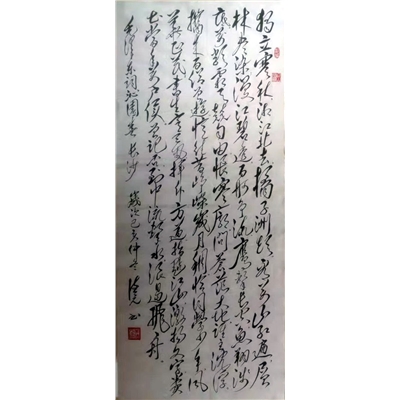 独立寒秋湘江北去橘子洲头看万山红遍层
林尽染漫江碧透百舸争流鹰击长空鱼翔浅
底万类霜天竞自由怅寥廓问苍茫大地谁主沉浮
携来百侣曾游忆往昔峥嵘岁月稠恰同学少年风
华正茂书生意气挥斥方遒指点江山激扬文字粪
土当年万户侯曾记否到中流击水浪遏飞舟
毛泽东词沁园春长沙 岁次己亥仲 书